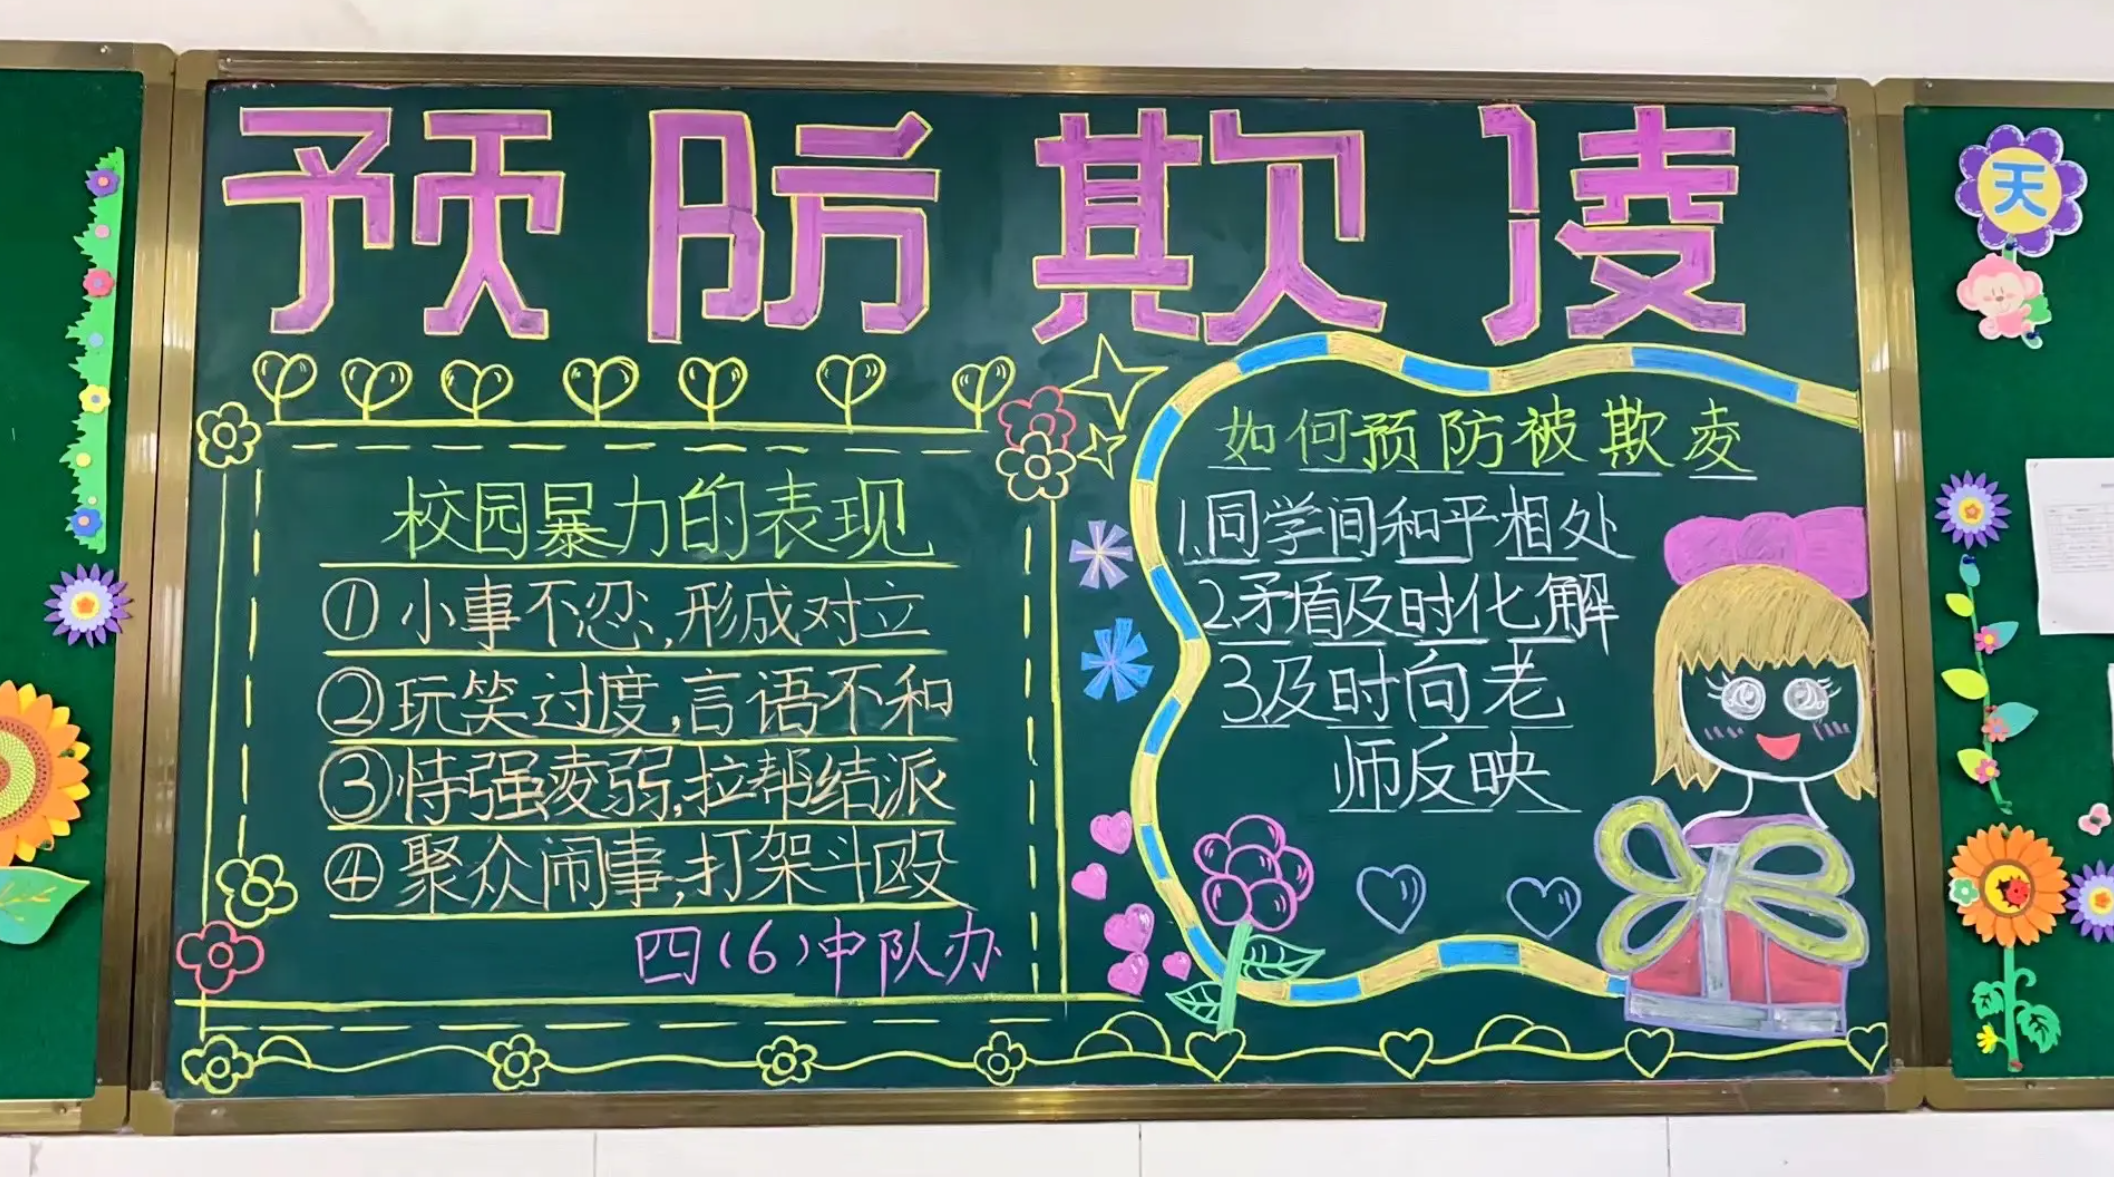 预防欺凌
校园暴力的表现
①小事不忍,形成对立
②玩笑过度,言语不和
③恃强凌弱,拉帮结派
④聚众闹事,打架斗殴
四(6)中队办
如何预防被欺凌
1、同学间和平相处
2矛盾及时化解
3及时向老
师反映
天